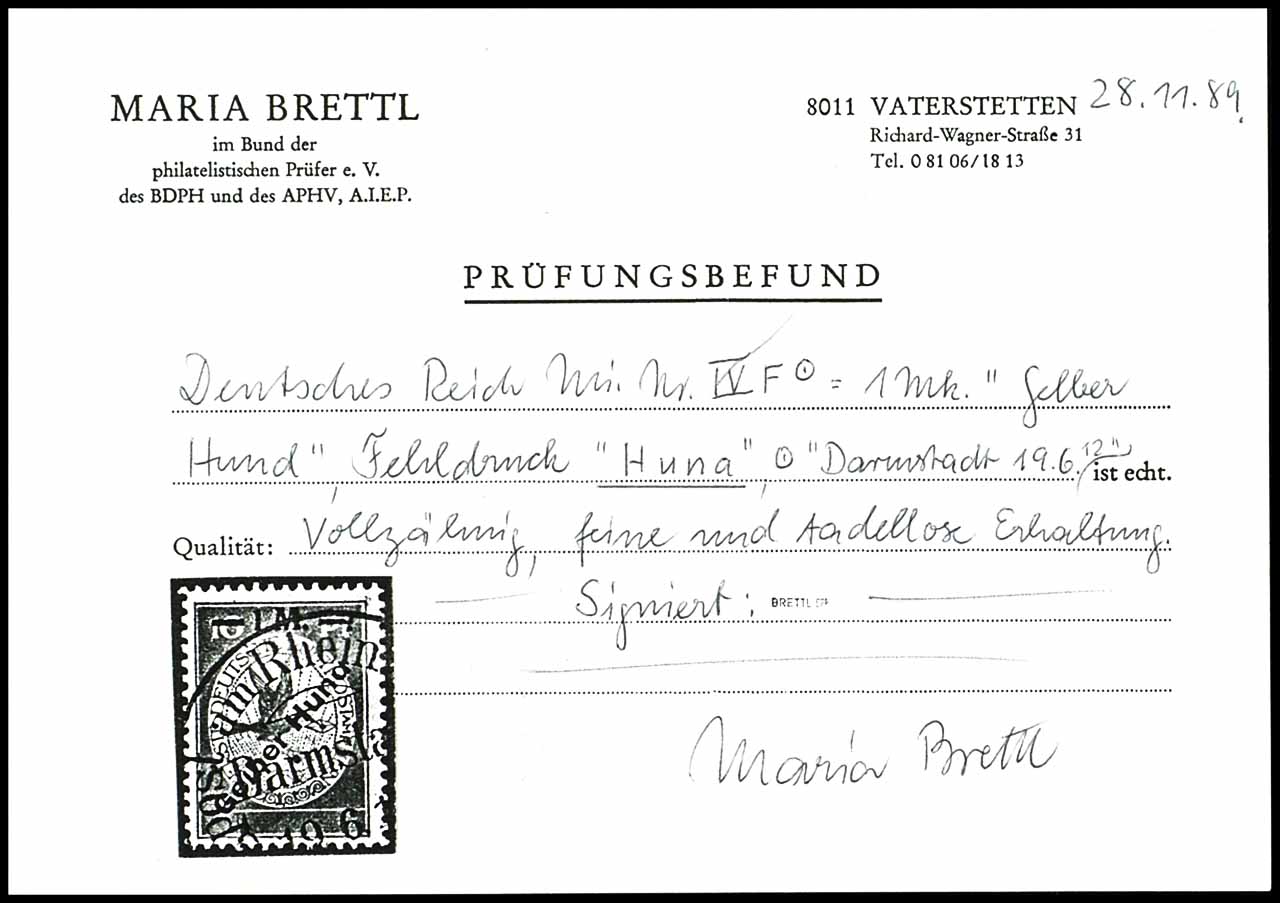 MARIA BRETTL
im Bund der
philatelistischen Prüfer e. V.
des BDPH und des APHV, A.I.E.P.
8011 VATERSTETTEN 28.11.89.
Richard-Wagner-Straße 31
Tel. 0 81 06/18 13
PRÜFUNGSBEFUND
Deutsches Reich Mi. Nr. IV F ⊙ = 1 Mk. "Gelber
Hund", Fehldruck "Huna", ⊙ "Darmstadt 19.6.12" ist echt.
Qualität: Vollzähnig, feine und tadellose Erhaltung.
Signiert: BRETTL
Maria Brettl
1 M.
am Rhein
Huna
Darmsta
19 6